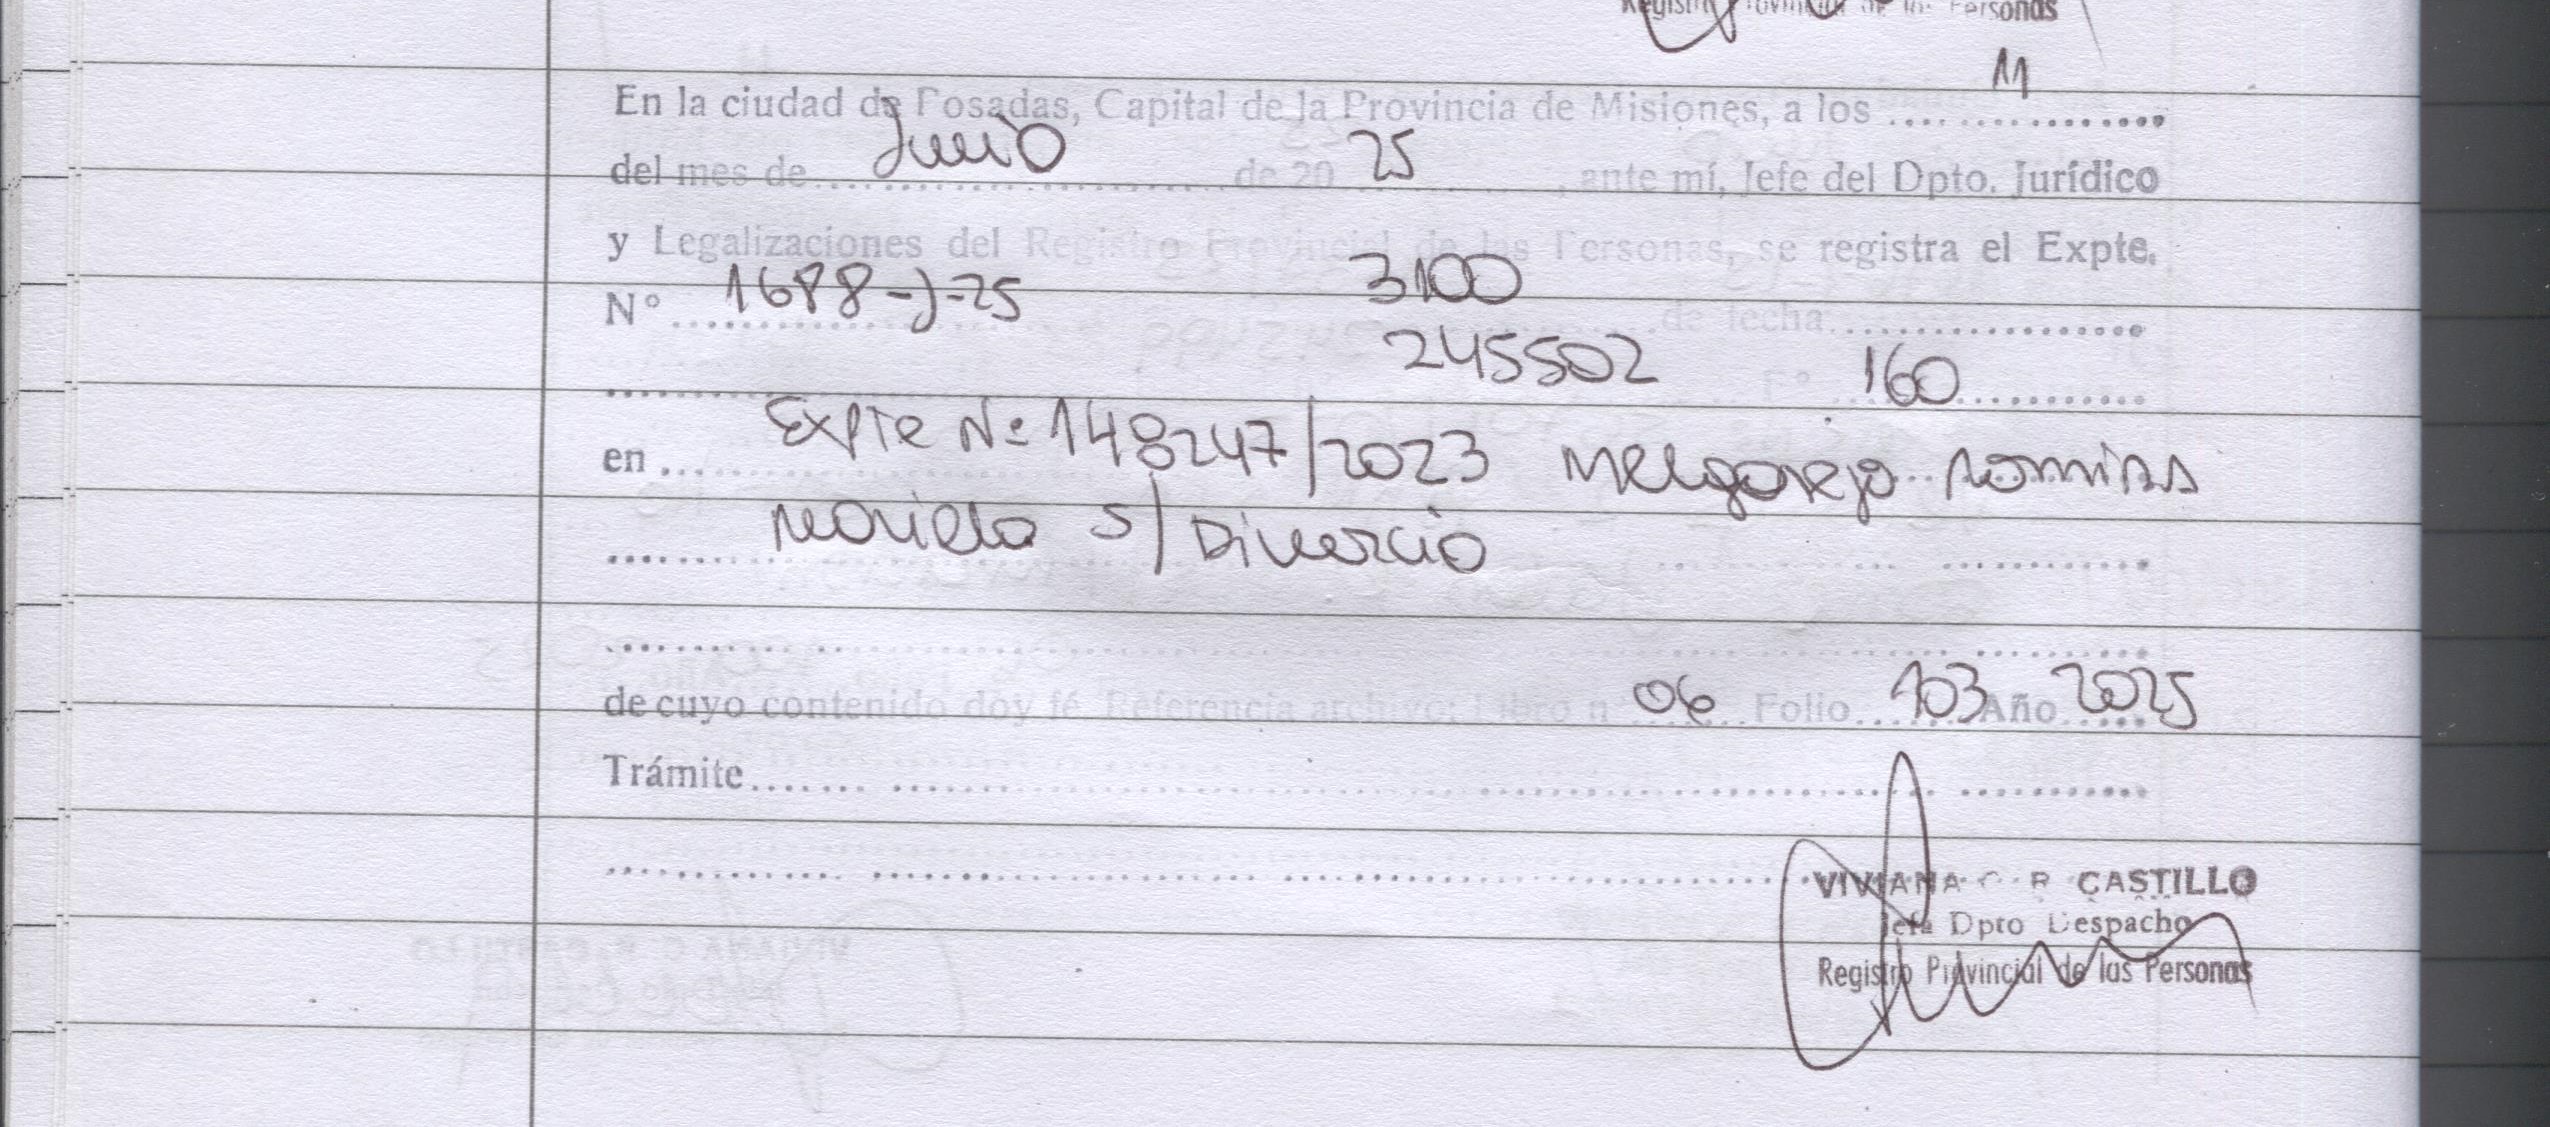 Registro Provincial de las Personas
En la ciudad de Posadas, Capital de la Provincia de Misiones, a los 11
del mes de Junio de 20 25, ante mí, Jefe del Dpto. Jurídico
y Legalizaciones del Registro Provincial de las Personas, se registra el Expte.
N° 1688-J-25 3100 de fecha
245502 F° 160
en Expte Nº 148247/2023 Melgarejo Romina
Mariela S/ Divorcio
de cuyo contenido doy fé Referencia archivo: Libro n° 06 Folio 103 Año 2025
Trámite
VIVIANA C. R. CASTILLO
Jefa Dpto Despacho
Registro Provincial de las Personas